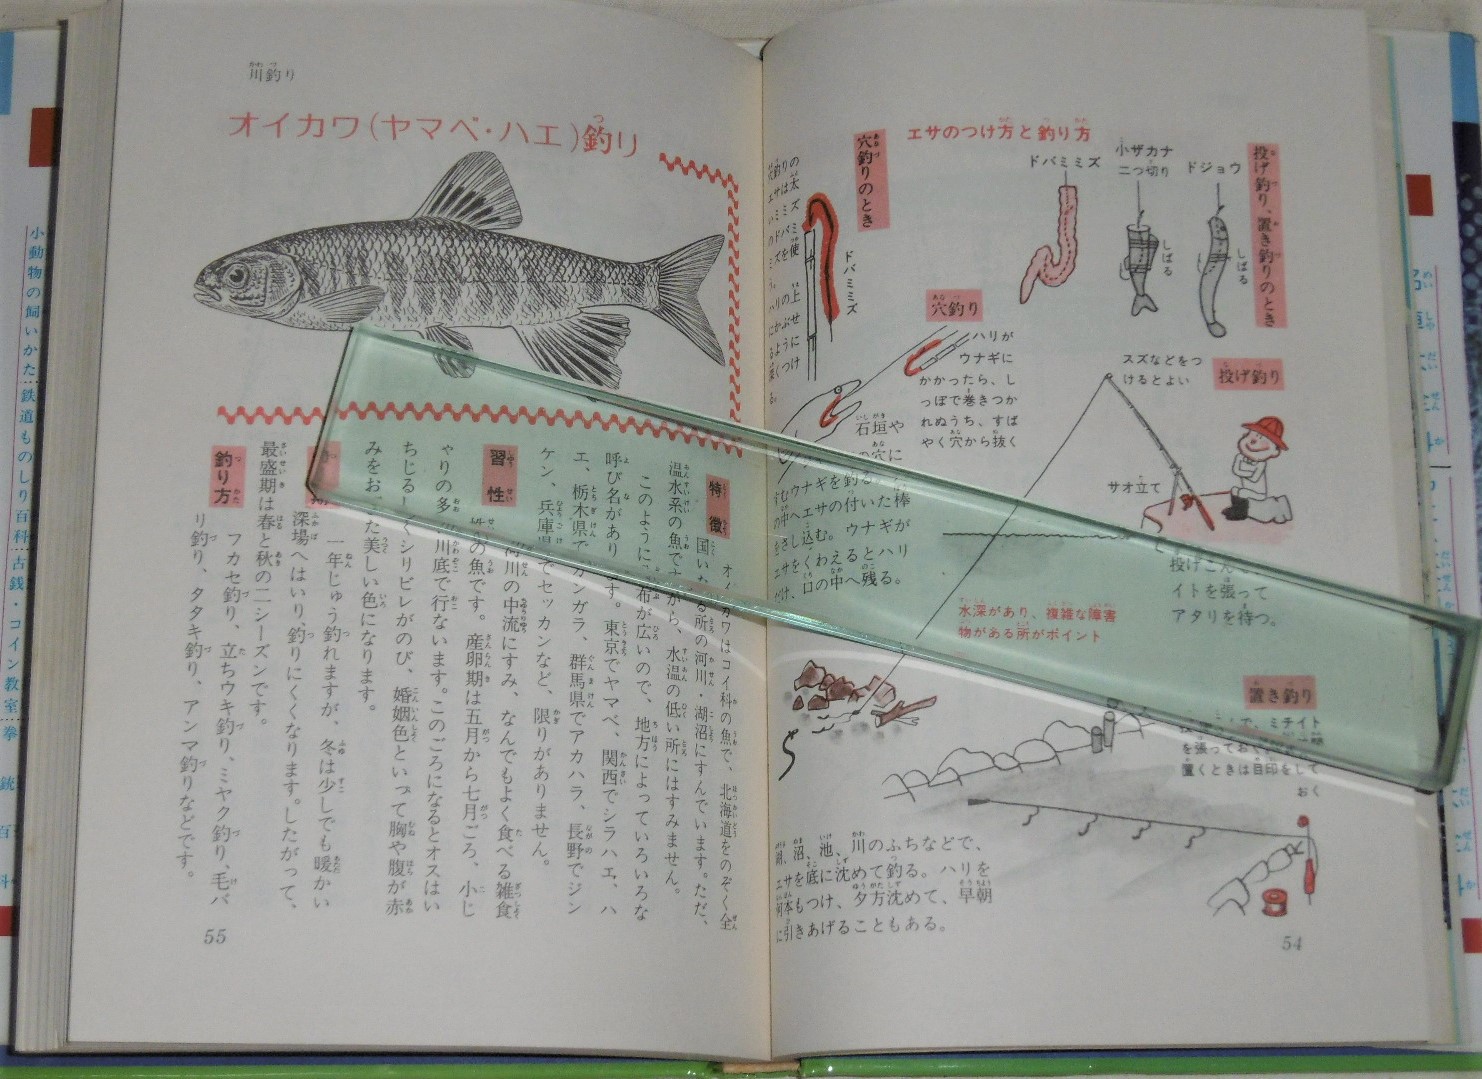 エサのつけ方と釣り方
投げ釣り、置き釣りのとき
ドジョウ
しばる
小ザカナ
二つ切り
しばる
ドバミミズ
穴釣りのとき
ドバミミズ
穴釣り
ハリが
ウナギに
かかったら、し
っぽで巻きつか
れぬうち、すば
やく穴から抜く
石垣や
の穴に
むウナギを釣る
の中へエサの付いた棒
をさし込む。ウナギが
エサをくわえるとハリ
だけ、口の中へ残る。
投げ釣り
スズなどをつ
けるとよい
サオ立て
イトを張って
アタリを待つ。
水深があり、複雑な障害
物がある所がポイント
置き釣り
ミチイト
を張ってお
置くときは目印をして
おく
湖、沼、池、川のふちなどで、
エサを底に沈めて釣る。ハリを
何本もつけ、夕方沈めて、早朝
に引きあげることもある。
54
川釣り
オイカワ(ヤマベ・ハエ)釣り
特徴
オイカワはコイ科の魚で、北海道をのぞく全
国いたる所の河川・湖沼にすんでいます。ただ、
温水系の魚ですから、水温の低い所にはすみません。
このように分布が広いので、地方によっていろいろな
呼び名があります。東京でヤマベ、関西でシラハエ、ハ
エ、栃木県でカンガラ、群馬県でアカハラ、長野でジン
ケン、兵庫県でセッカンなど、限りがありません。
習性
河川の中流にすみ、なんでもよく食べる雑食
性の魚です。産卵期は五月から七月ごろ、小じ
ゃりの多い川底で行ないます。このごろになるとオスはい
ちじるしくシリビレがのび、婚姻色といって胸や腹が赤
みをおびた美しい色になります。
一年じゅう釣れますが、冬は少しでも暖かい
深場へはいり、釣りにくくなります。したがって、
最盛期は春と秋の二シーズンです。
釣り方
フカセ釣り、立ちウキ釣り、ミャク釣り、毛バ
リ釣り、タタキ釣り、アンマ釣りなどです。
55
小動物の飼いかた・鉄道ものしり百科・古銭・コイン教室・拳
銃百科